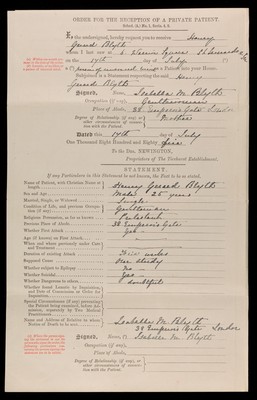 ORDER FOR THE RECEPTION OF A PRIVATE PATIENT.
I, the undersigned, hereby request you to receive Henry
Gurard Blyth
whom I last saw at
on the 14th day of July (*)
a person of unsound mind as a Patient into your House.
Subjoined is a Statement respecting the said Henry
Gurard Blyth
Signed, Name, Isabella M. Blyth
Occupation (if any), Gentlewoman
Place of Abode, 38 Emperor's Gate London
Degree of Relationship (if any) or other circumstance of connexion with the Patient. Mother
Dated this 14th day of July
One Thousand Eight Hundred and Eighty five
To the Drs. NEWINGTON,
Proprietors of The Ticehurst Establishment.
STATEMENT.
If any Particulars in this Statement be not known, the Fact to be so stated.
Name of Patient, with Christian Name at length Henry Gurard Blyth
Sex and Age Male 25 years
Married, Single, or Widowed Single
Condition of Life, and previous Occupation (if any) Gentleman
Religious Persuasion, as far as known Protestant
Previous Place of Abode 38 Emperor's Gate
Whether First Attack yes
Age (if known) on First Attack
When and where previously under Care and Treatment
Duration of existing Attack Three weeks
Supposed Cause Over study
Whether subject to Epilepsy No
Whether Suicidal yes
Whether Dangerous to others doubtful
Name and Address of Relative to whom Notice of Death to be sent Isabella M. Blyth
38 Emperor's Gate London
Signed, Name, Isabella M. Blyth
Occupation (if any),
Place of Abode,
Degree of Relationship (if any) or other circumstance of connexion with the Patient.